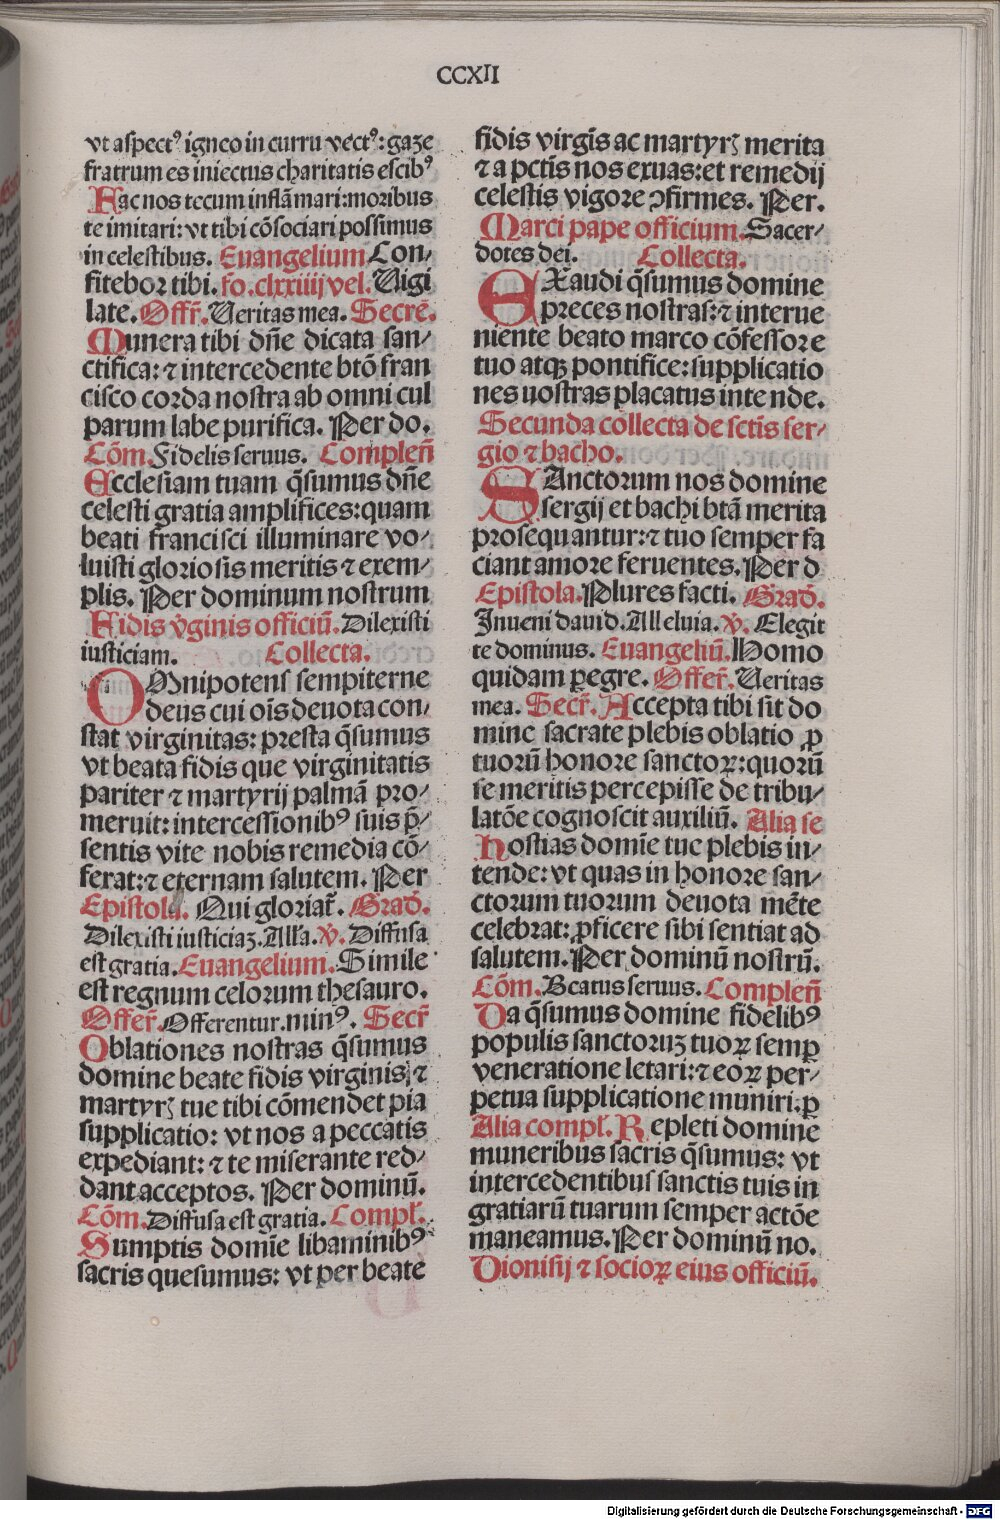 CCXII
vt aspectꝰ igneo in curru vectꝰ: gaze
fratrum es iniectus charitatis escibꝰ
Fac nos tecum inflāmari: moribus
te imitari: vt tibi cōsociari possimus
in celestibus. Euangelium. Con⸗
fitebor tibi. fo. clxxiiij vel. Uigi
late. Offr̄. Ueritas mea. Secrē.
Munera tibi dn̄e dicata san⸗
ctifica: ⁊ intercedente btō fran
cisco corda nostra ab omni cul
parum labe purifica. Per do.
Cōm. Fidelis seruus. Complen̄
Ecclesiam tuam q̄sumus dn̄e
celesti gratia amplifices: quam
beati francisci illuminare vo⸗
luisti gloriosis meritis ⁊ exem⸗
plis. Per dominum nostrum
Fidis v̓ginis officiū. Dilexisti
iusticiam. Collecta.
OMnipotens sempiterne
deus cui oīs deuota con⸗
stat virginitas: presta q̄sumus
vt beata fidis que virginitatis
pariter ⁊ martyrij palmā pro⸗
meruit: intercessionibꝰ suis p̄⸗
sentis vite nobis remedia cō⸗
ferat: ⁊ eternam salutem. Per
Epistola. Qui gloriat᷑. Grad̓.
Dilexisti iusticiaꝫ. All'a. v̓. Diffusa
est gratia. Euangelium. Simile
est regnum celorum thesauro.
Offer̄. Offerentur. minꝰ. Secr̄
Oblationes nostras q̄sumus
domine beate fidis virginis ⁊
martyrꝭ tue tibi cōmendet pia
supplicatio: vt nos a peccatis
expediant: ⁊ te miserante red⸗
dant acceptos. Per dominū.
Cōm. Diffusa est gratia. Compl'.
Sumptis domīe libaminibꝰ
sacris quesumus: vt per beate
fidis virgīs ac martyrꝭ merita
⁊ a pctīs nos exuas: et remedij
celestis vigore ꝯfirmes. Per.
Marci pape officium. Sacer⸗
dotes dei. Collecta.
EXaudi q̄sumus domine
preces nostras: ⁊ interue
niente beato marco cōfessore
tuo atqꝫ pontifice: supplicatio
nes uostras placatus inte nde.
Secunda collecta de sctīs ser⸗
gio ⁊ bacho.
SAnctorum nos domine
sergij et bachi btā merita
prosequantur: ⁊ tuo semper fa
ciant amore feruentes. Per d
Epistola. Plures facti. Grad̓.
Inueni dauid. Alleluia. v̓. Elegit
te dominus. Euangeliū. Homo
quidam ꝑegre. Offer̄. Ueritas
mea. Secr̄. Accepta tibi sit do
mine sacrate plebis oblatio ꝓ
tuorū honore sanctoꝝ: quorū
se meritis percepisse de tribu⸗
latōe cognoscit auxiliū. Alia se
Hostias domīe tue plebis in⸗
tende: vt quas in honore san⸗
ctorum tuorum deuota mēte
celebrat: ꝓficere sibi sentiat ad
salutem. Per dominū nostrū.
Cōm. Beatus seruus. Complen̄
Da q̄sumus domine fidelibꝰ
populis sanctoruꝫ tuoꝝ semꝑ
veneratione letari: ⁊ eoꝝ per⸗
petua supplicatione muniri. ꝑ
Alia compl'. Repleti domine
muneribus sacris q̄sumus: vt
intercedentibus sanctis tuis in
gratiarū tuarum semper actōe
maneamus. Per dominū no.
Dionisij ⁊ socioꝝ eius officiū.
Digitalisierung gefördert durch die Deutsche Forschungsgemeinschaft - DFG